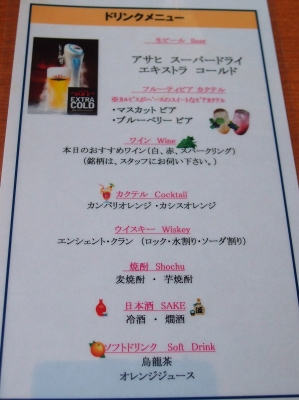 ドリンクメニュー
生ビール Beer
アサヒ スーパードライ
エキストラ コールド
EXTRA
COLD
フルーティビア カクテル
※カルピスがベースのスイートなビアカクテル
・マスカット ビア
・ブルーベリー ビア
ワイン Wine
本日のおすすめワイン(白、赤、スパークリング)
(銘柄は、スタッフにお伺い下さい。)
カクテル Cocktail
カンパリオレンジ・カシスオレンジ
ウイスキー Wiskey
エンシェント・クラン (ロック・水割り・ソーダ割り)
焼酎 Shochu
麦焼酎 ・ 芋焼酎
日本酒 SAKE
冷酒 ・ 燗酒
ソフトドリンク Soft Drink
烏龍茶
オレンジジュース